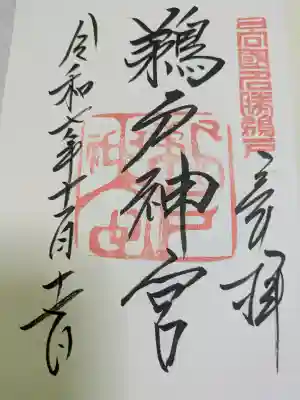 日向國名勝鵜戸
奉拝
鵜戸神宮
令和七年十一月十六日